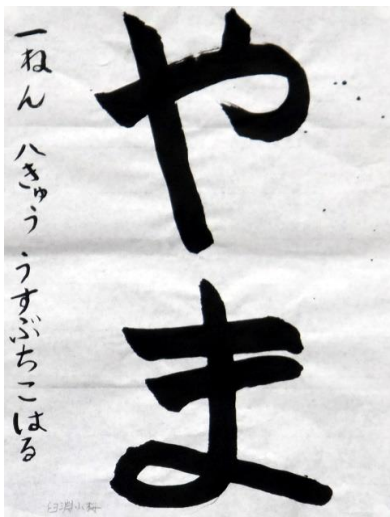 やま
一ねん 八きゅう うすぶちこはる